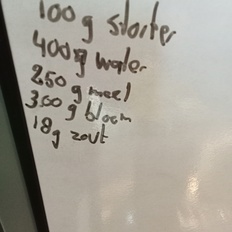 100 g starter
400g water
250 g meel
300 g bloem
18g zout